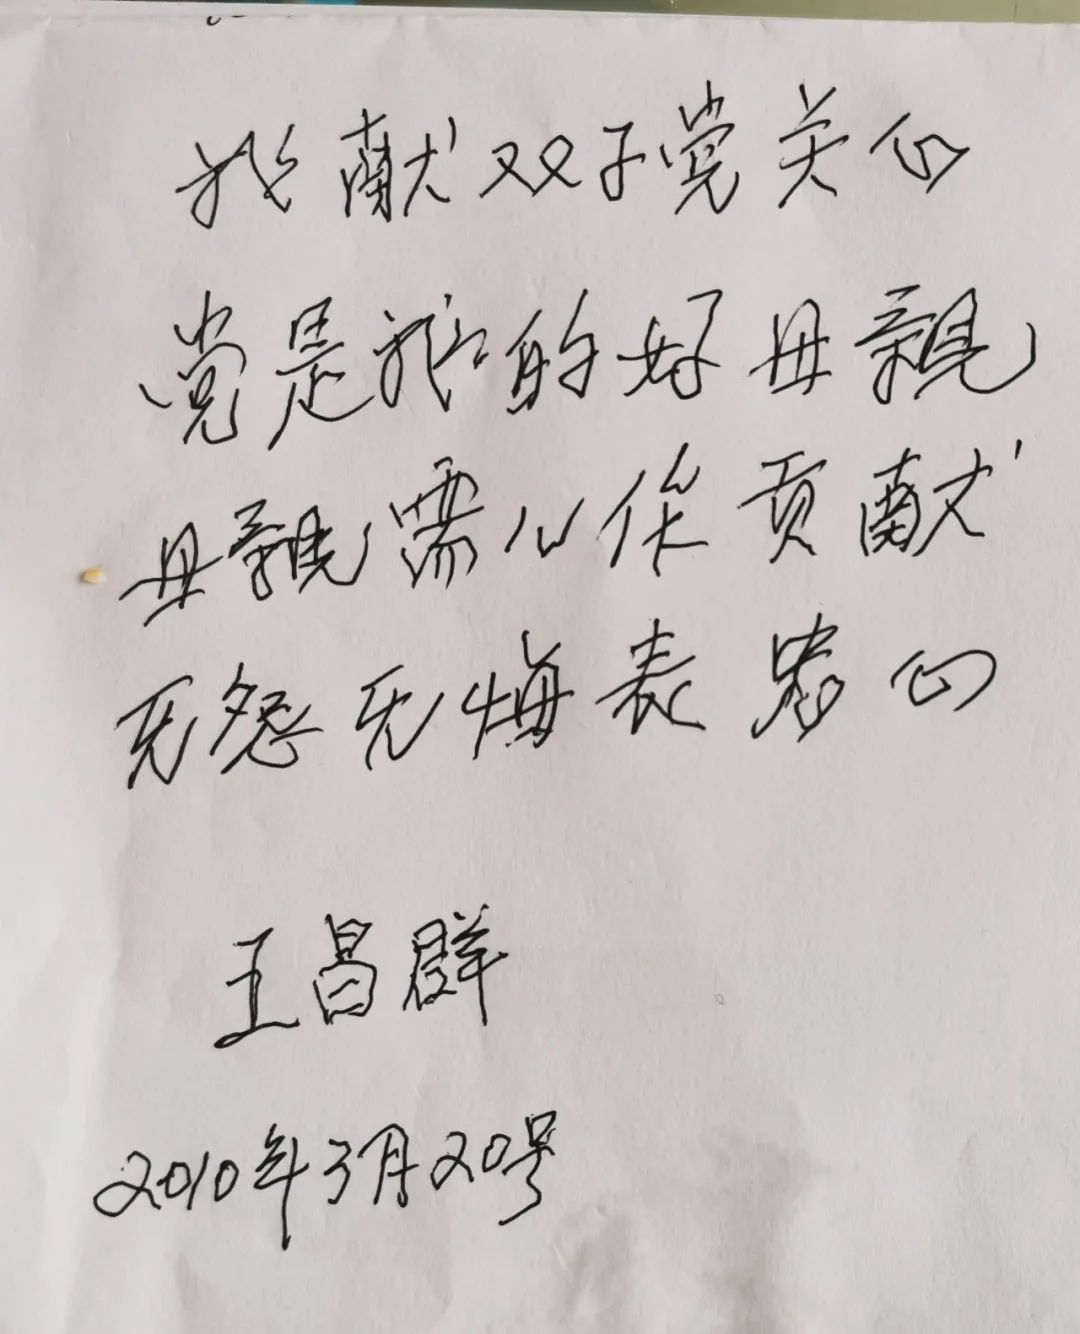 我献双子党关心
党是我的好母親
母親需儿作贡献
无怨无悔表忠心
王昌群
2010年3月20号